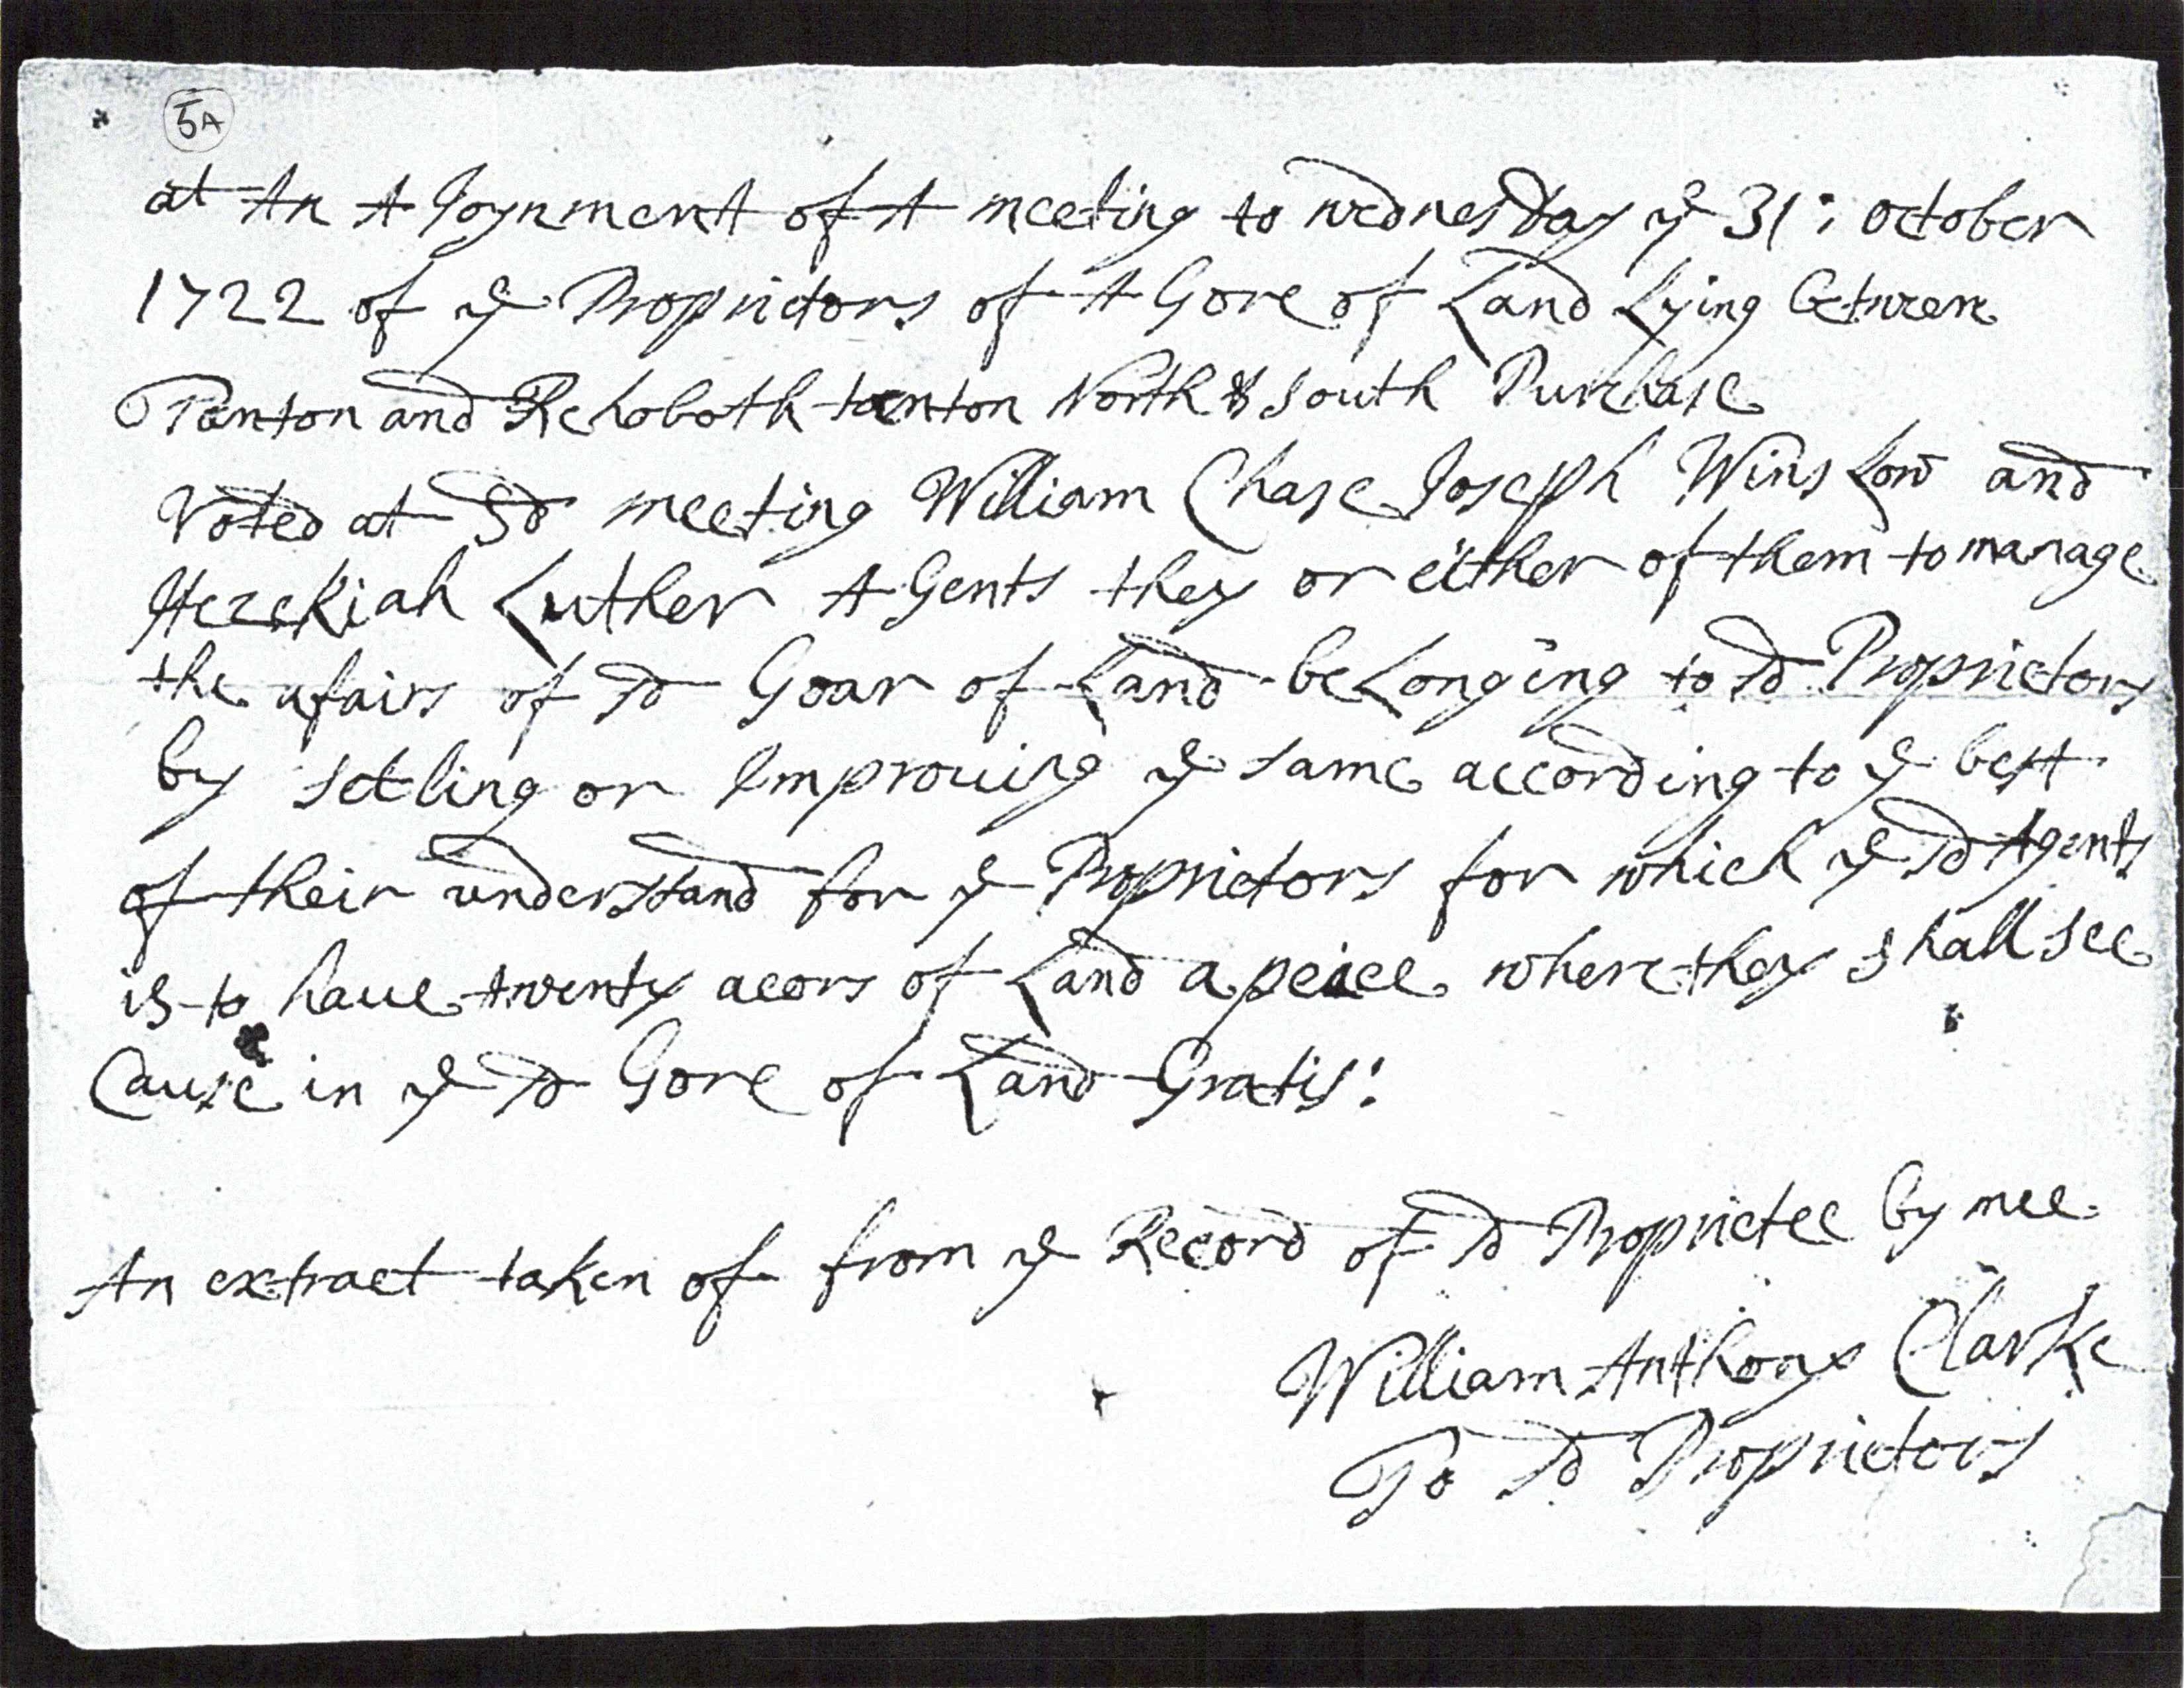 5A
at An A Joynment of A meeting to wednesday ye 31: october
1722 of ye Proprietors of A Gore of Land Lying Between
Tanton and Rehoboth tanton North & South Purchase
Voted at Sd meeting William Chase Joseph Wins Low and
Hezekiah Luther A Gents they or either of them to manage
the afairs of sd Goar of Land be Longing to sd Proprietors
by setling or Improuing ye same according to ye best
of their understand for ye Proprietors for which ye sd Agents
is to haue twenty acors of Land a peice where they shall see
Cause in ye sd Gore of Land Gratis:
An extract taken of from ye Record of sd Proprietee by mee
William Anthony Clarke
To sd Proprietors